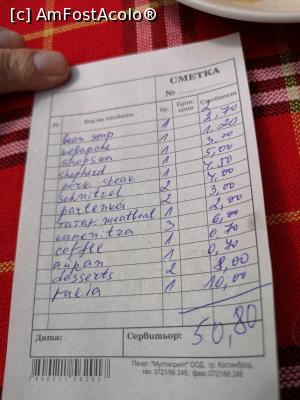 [c] AmFostAcolo®
СМЕТКА
№
№ Вид на стоката бр. Един. цена Стойност
bean soup 1 2,70
kebapche 1 1,20
shopska 1 3,00
shepherd 1 5,00
pork steak 1 7,50
schnitzel 2 4,00
parlenka 2 3,00
tatar meatball 1 2,00
kamenitza 3 6,00
coffee 1 0,70
ajran 1 0,70
desserts 2 8,00
rakia 1 10,00
50,80
Дата: Сервитьор:
Печат: "Мултипринт" ООД, гр. Костинброд,
тел. 0721/66 245, факс 0721/66 246